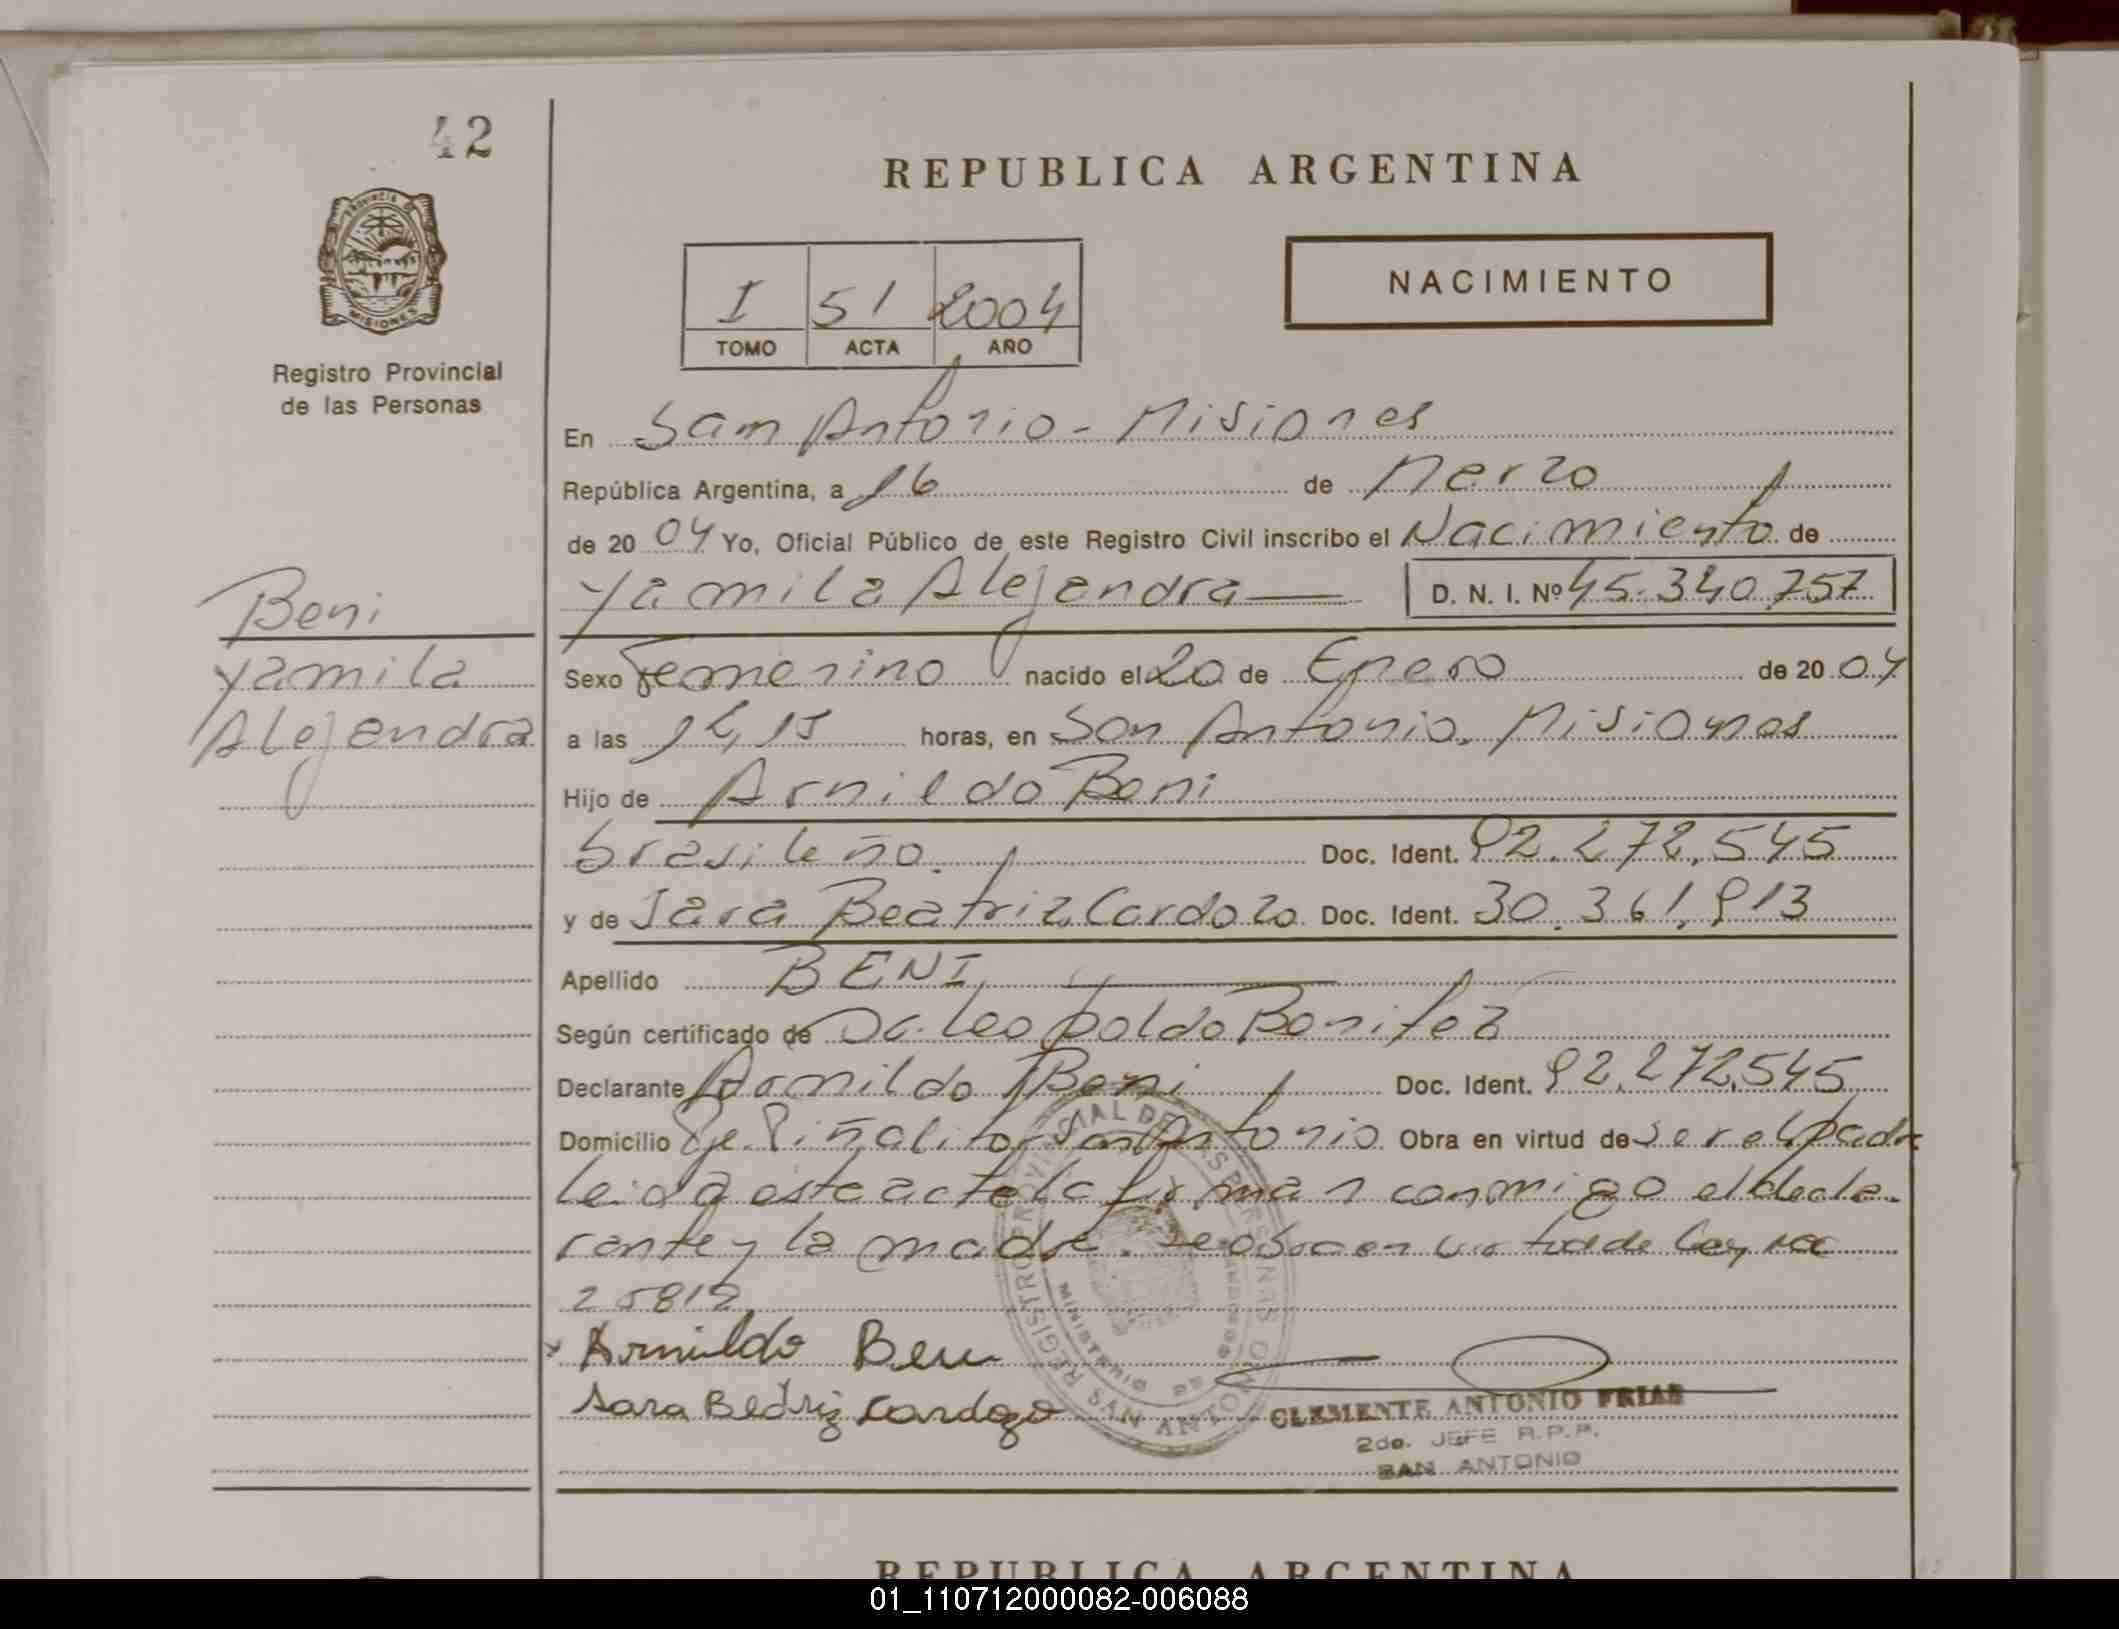 42
REPUBLICA ARGENTINA
PROVINCIA D
MISIONES
Registro Provincial
de las Personas
I 51 2004
TOMO ACTA AÑO
NACIMIENTO
En San Antonio - Misiones
República Argentina, a 16 de Marzo
de 2004 Yo, Oficial Público de este Registro Civil inscribo el Nacimiento de
Yamila Alejandra D. N. I. Nº 45.340.757
Beni
Yamila
Alejandra
Sexo Femenino nacido el 20 de Enero de 2004
a las horas, en San Antonio. Misiones
Hijo de Arnildo Beni
brasileño. Doc. Ident. 92.272.545
y de Sara Beatriz Cardozo Doc. Ident. 30.361.913
Apellido BENI
Según certificado de Dr. Leopoldo Benitez
Declarante Arnildo Beni Doc. Ident. 92.272.545
Domicilio Pje. Piñalito San Antonio Obra en virtud de ser el padre
leida este acta la firman conmigo el decla-
rante y la madre. Se obra en virtud de ley nro
25819
Arnildo Beni
Sara Beatriz Cardozo
REGISTRO PROVINCIAL DE LAS PERSONAS
MINISTERIO DE
SAN ANTONIO
CLEMENTE ANTONIO FRIAS
2do. JEFE R.P.P.
SAN ANTONIO
REPUBLICA ARGENTINA
01_110712000082-006088